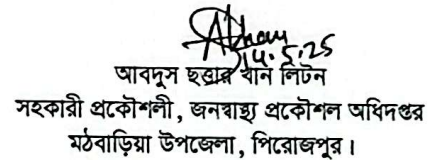 14.5.25
আবদুস ছত্তার খান লিটন
সহকারী প্রকৌশলী, জনস্বাস্থ্য প্রকৌশল অধিদপ্তর
মঠবাড়িয়া উপজেলা, পিরোজপুর।